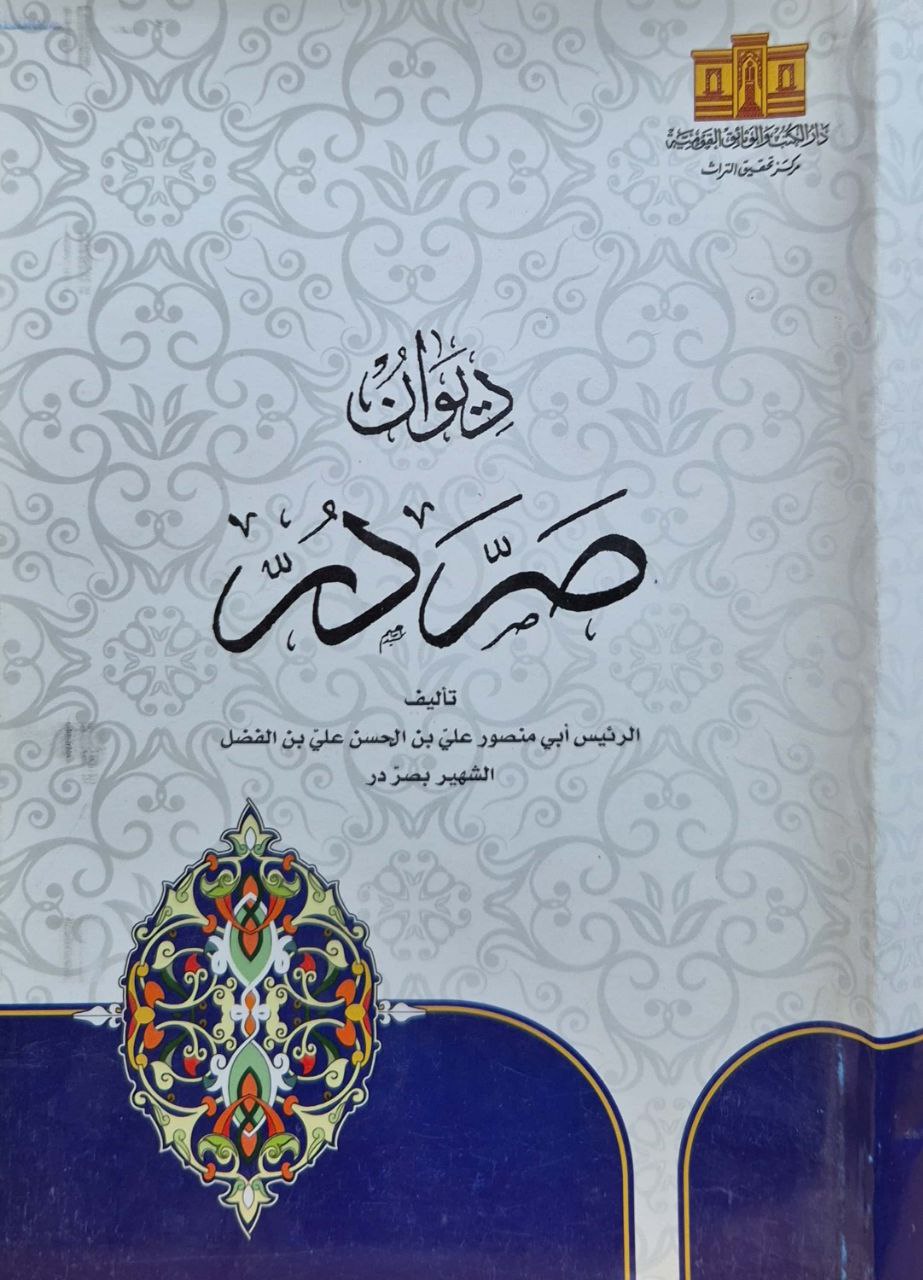 دار الكتب والوثائق القومية
مركز تحقيق التراث
دِيوَانُ
صَرَّدُرَّ
تأليف
الرئيس أبي منصور عليّ بن الحسن عليّ بن الفضل
الشهير بصرّ در